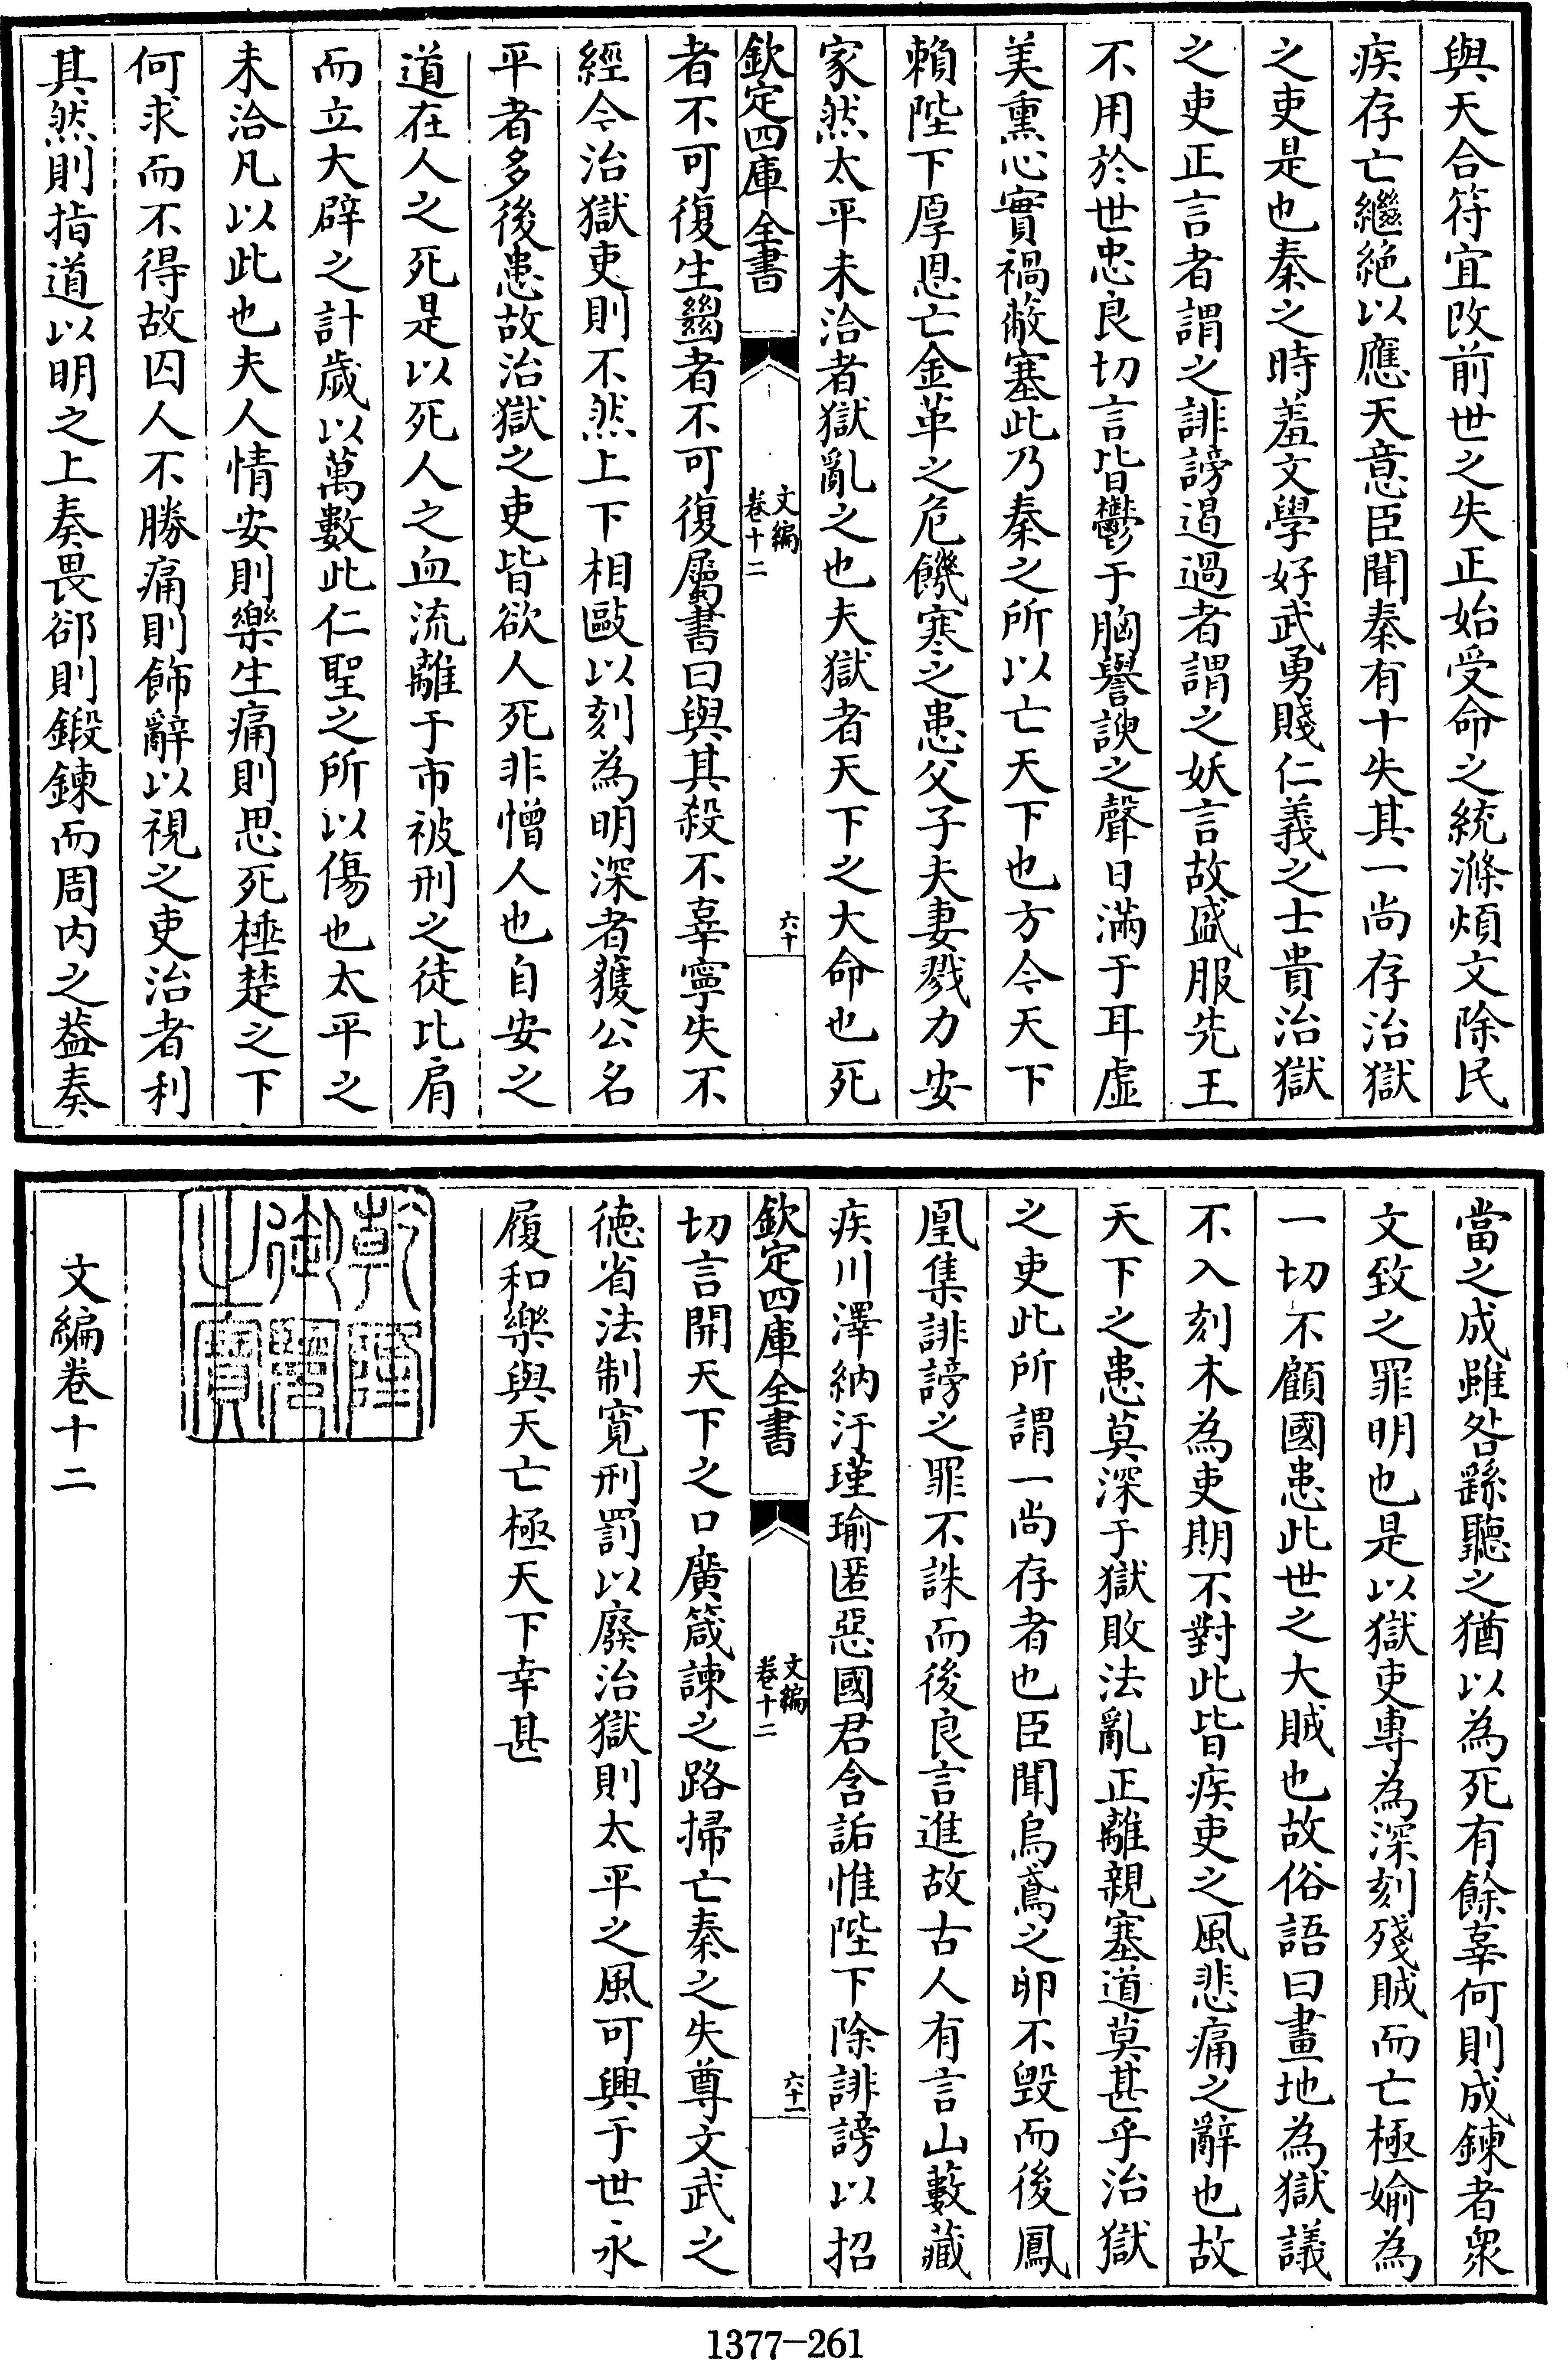 與天合符宜改前世之失正始受命之統滌煩文除民
疾存亡繼絶以應天意臣聞秦有十失其一尚存治獄
之吏是也秦之時羞文學好武勇賤仁義之士貴治獄
之吏正言者謂之誹謗遏過者謂之妖言故盛服先王
不用於世忠良切言皆鬱于胸譽諛之聲日滿于耳虛
美熏心實禍蔽塞此乃秦之所以亡天下也方今天下
賴陛下厚恩亡金革之危饑寒之患父子夫妻戮力安
家然太平未洽者獄亂之也夫獄者天下之大命也死
欽定四庫全書
文編
卷十二
六十
者不可復生𢇍者不可復屬書曰與其殺不辜寧失不
經今治獄吏則不然上下相毆以刻為明深者獲公名
平者多後患故治獄之吏皆欲人死非憎人也自安之
道在人之死是以死人之血流離于市被刑之徒比肩
而立大辟之計歲以萬數此仁聖之所以傷也太平之
未洽凡以此也夫人情安則樂生痛則思死棰楚之下
何求而不得故囚人不勝痛則飾辭以視之吏治者利
其然則指道以明之上奏畏郤則鍛鍊而周内之葢奏
當之成雖咎繇聽之猶以為死有餘辜何則成鍊者衆
文致之罪明也是以獄吏專為深刻殘賊而亡極媮為
一切不顧國患此世之大賊也故俗語曰畫地為獄議
不入刻木為吏期不對此皆疾吏之風悲痛之辭也故
天下之患莫深于獄敗法亂正離親塞道莫甚乎治獄
之吏此所謂一尚存者也臣聞烏鳶之卵不毁而後鳳
凰集誹謗之罪不誅而後良言進故古人有言山藪藏
疾川澤納汙瑾瑜匿惡國君含詬惟陛下除誹謗以招
欽定四庫全書
文編
卷十二
六十一
切言開天下之口廣箴諫之路掃亡秦之失尊文武之
徳省法制寛刑罰以廢治獄則太平之風可興于世永
履和樂與天亡極天下幸甚
乾隆
御覽
之寶
文編卷十二
1377-261